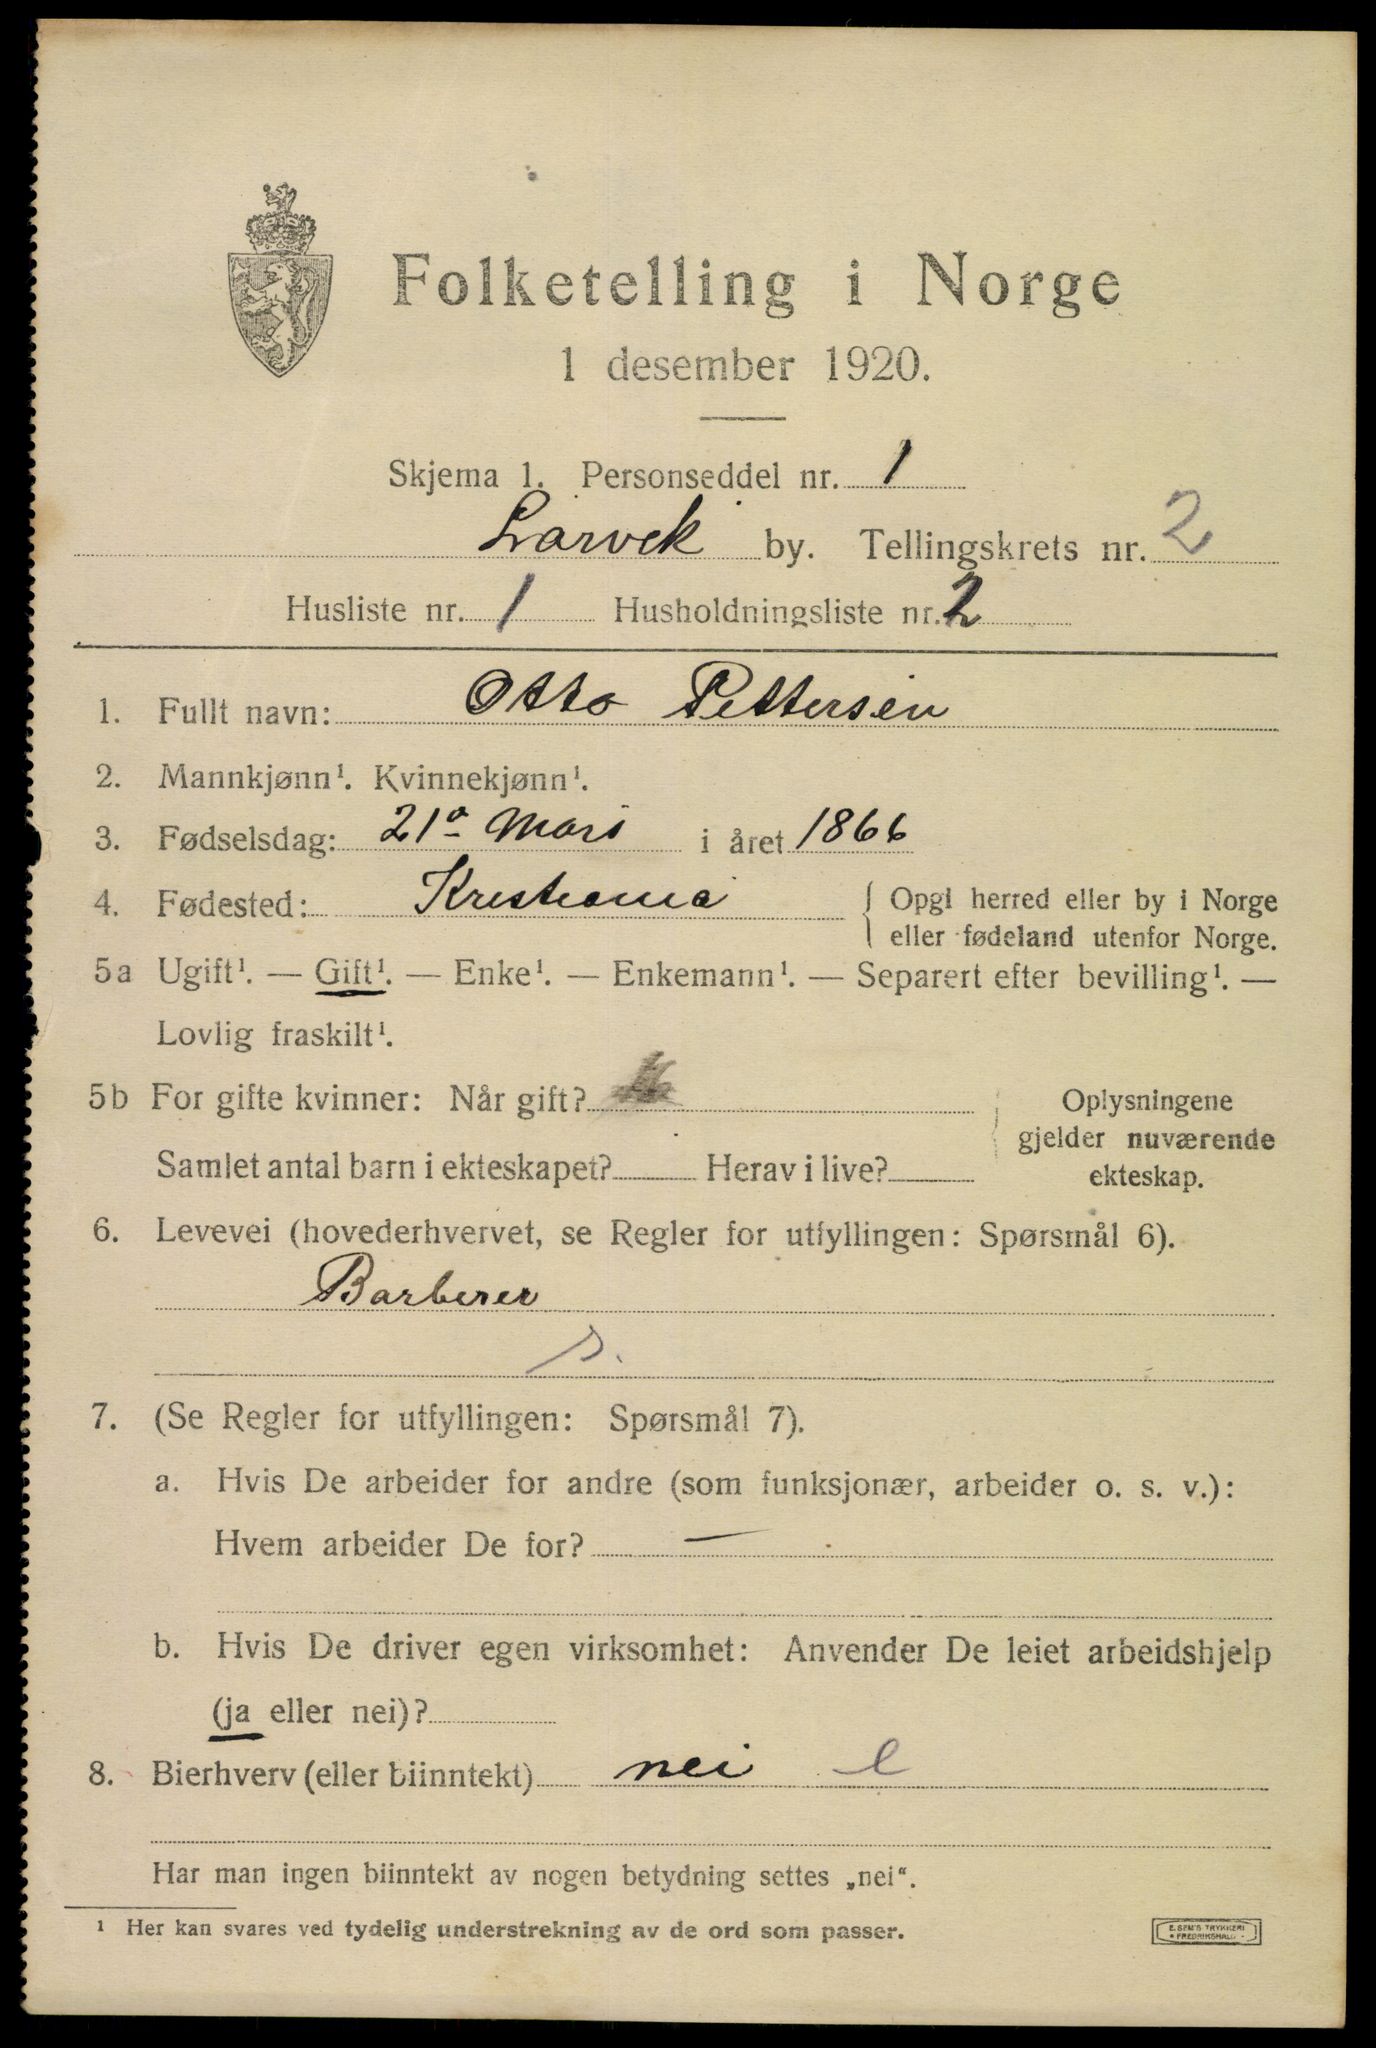 Folketelling i Norge
1 desember 1920.
Skjema 1. Personseddel nr. 1
Larvik by. Tellingskrets nr. 2
Husliste nr. 1 Husholdningsliste nr. 2
1. Fullt navn: Otto Pettersen
2. Mannkjønn¹. Kvinnekjønn¹.
3. Fødselsdag: 21de Mars i året 1866
4. Fødested: Kristiania { Opgi herred eller by i Norge
eller fødeland utenfor Norge.
5a Ugift¹. — Gift¹. — Enke¹. — Enkemann¹. — Separert efter bevilling¹. —
Lovlig fraskilt¹.
5b For gifte kvinner: Når gift?
Samlet antal barn i ekteskapet? Herav i live?
Oplysningene
gjelder nuværende
ekteskap.
6. Levevei (hovederhvervet, se Regler for utfyllingen: Spørsmål 6).
Barberer
s.
7. (Se Regler for utfyllingen: Spørsmål 7).
a. Hvis De arbeider for andre (som funksjonær, arbeider o. s. v.):
Hvem arbeider De for? —
b. Hvis De driver egen virksomhet: Anvender De leiet arbeidshjelp
(ja eller nei)?
8. Bierhverv (eller biinntekt) nei e
Har man ingen biinntekt av nogen betydning settes „nei“.
¹ Her kan svares ved tydelig understrekning av de ord som passer.
E. SEM'S TRYKKERI
• FREDRIKSHALD •